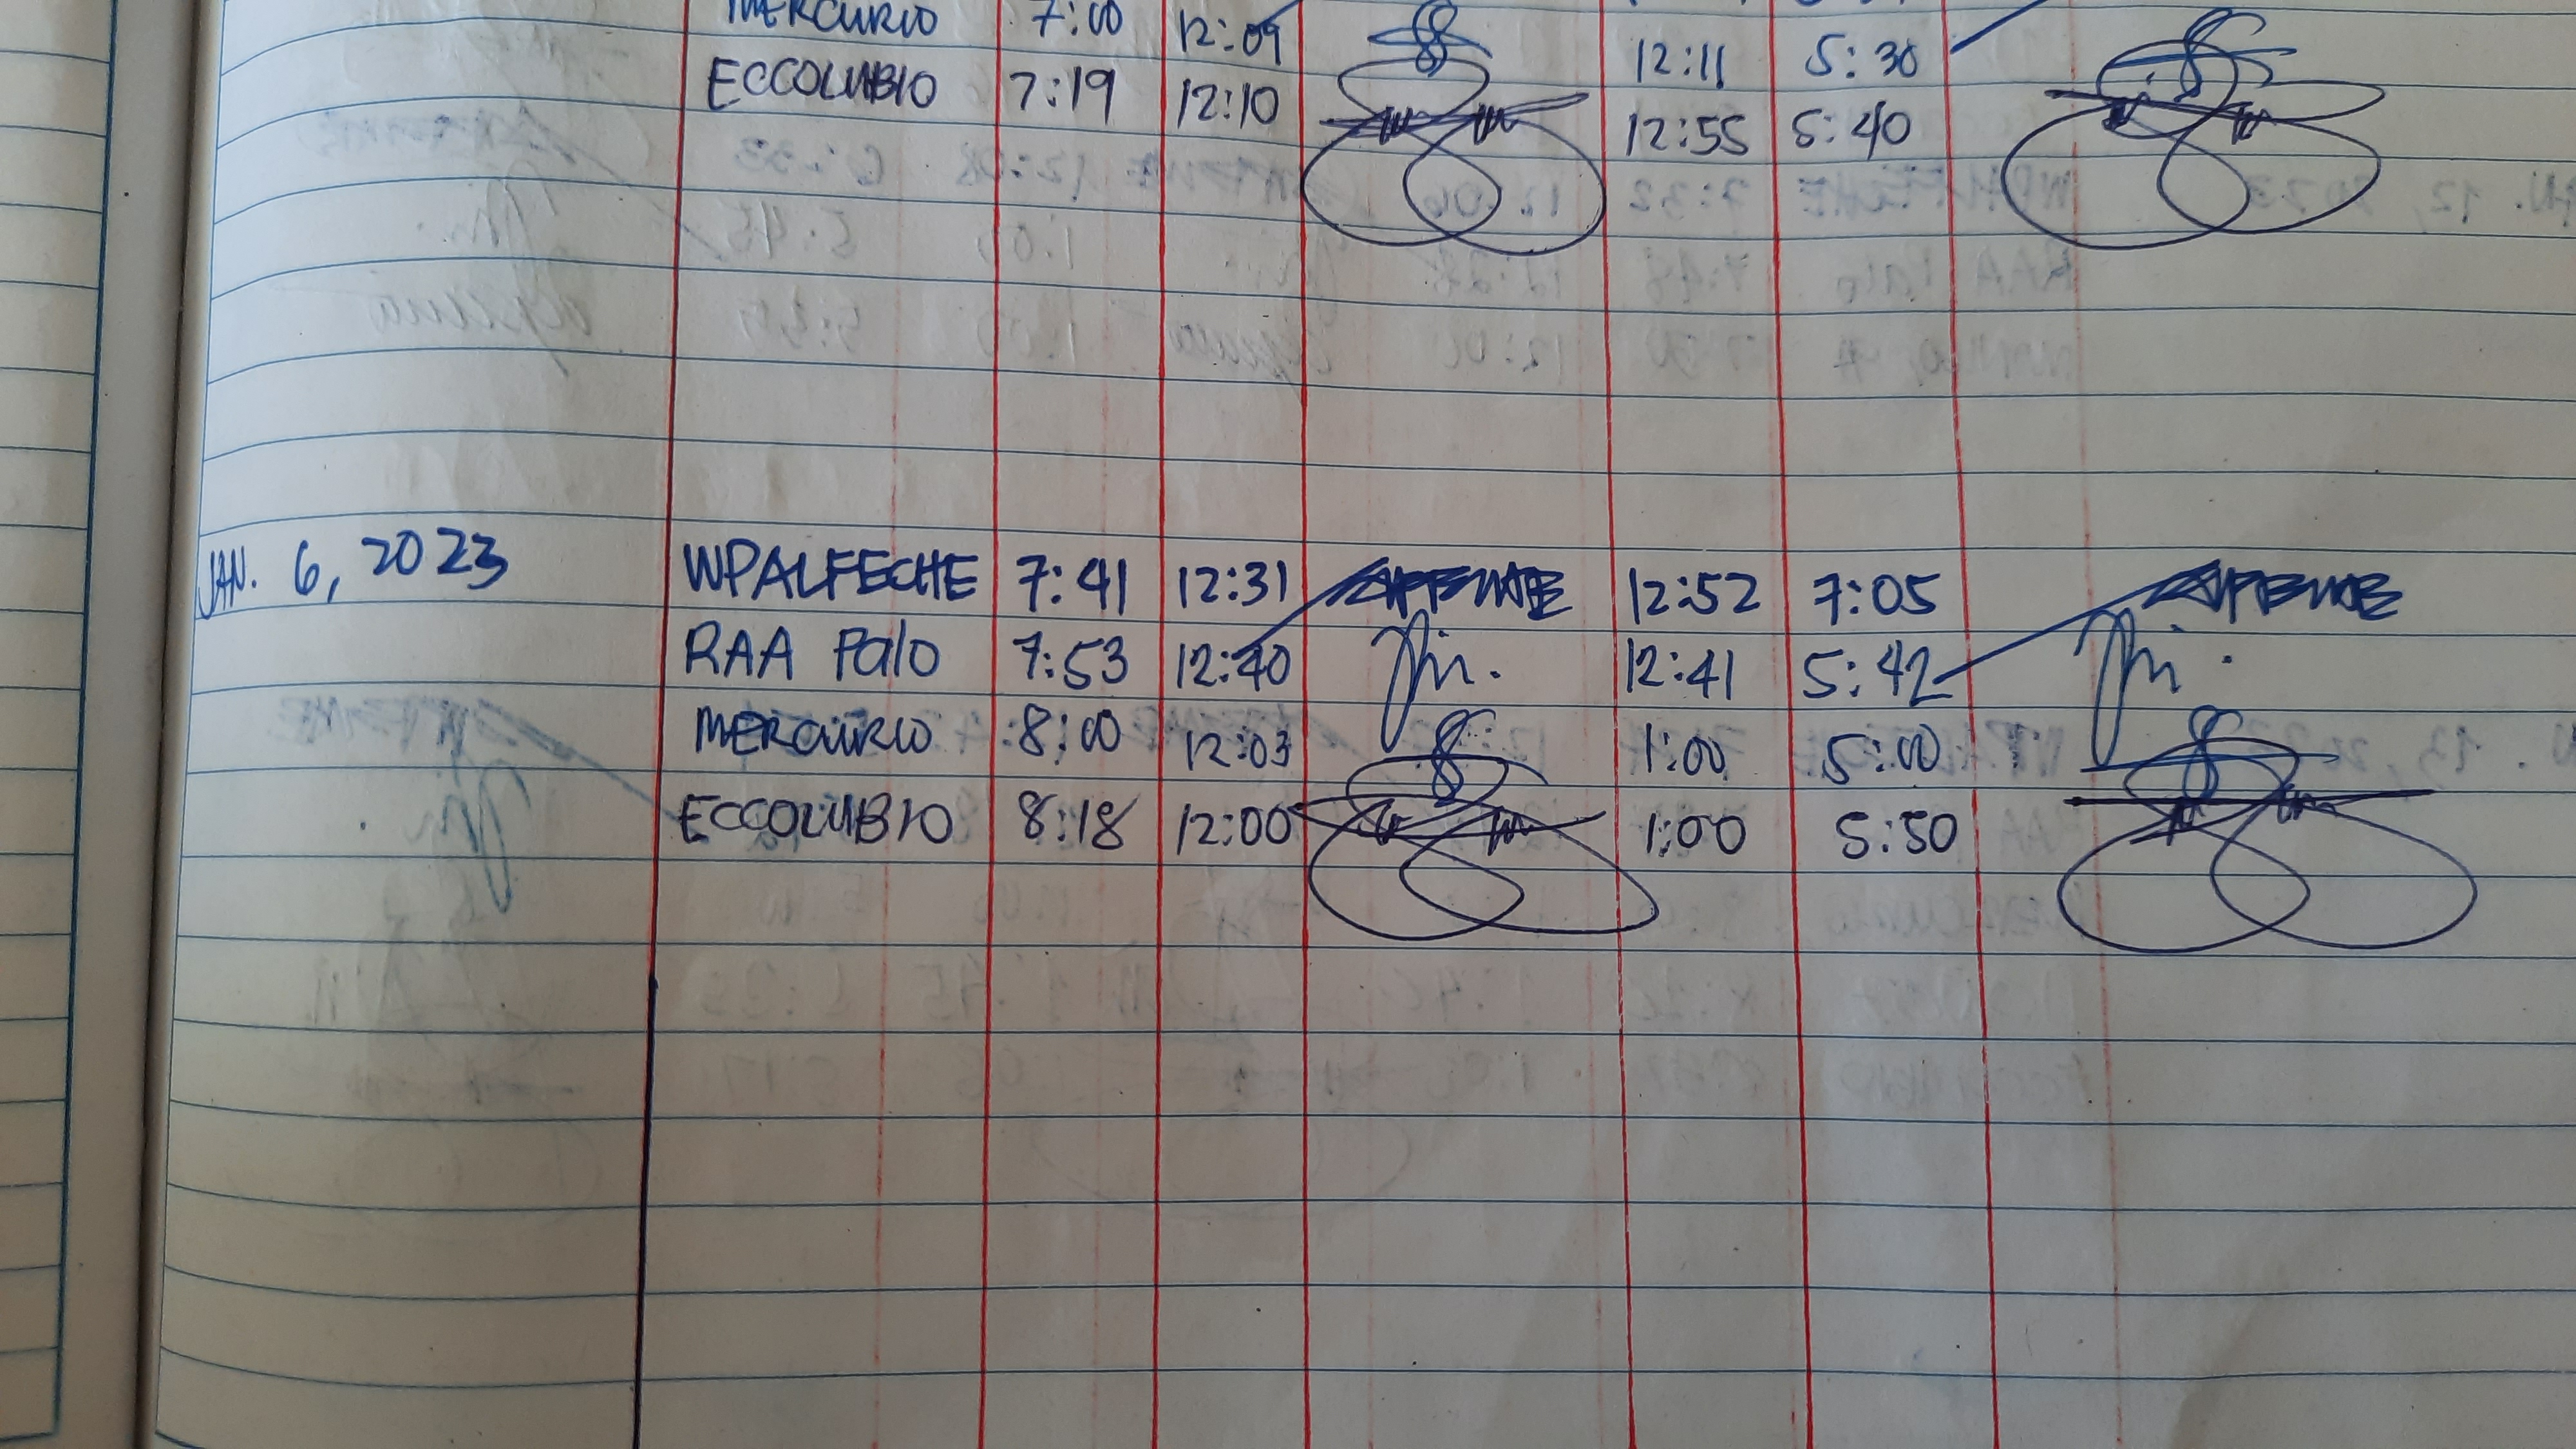 MERCURIO 7:00 12:09 12:11 5:30
ECCOLUBIO 7:19 12:10 12:55 5:40
JAN. 6, 2023 WPALFECHE 7:41 12:31 12:52 7:05
RAA Palo 7:53 12:40 12:41 5:42
MERCURIO 8:00 12:03 1:00 5:00
ECCOLUBIO 8:18 12:00 1:00 5:50